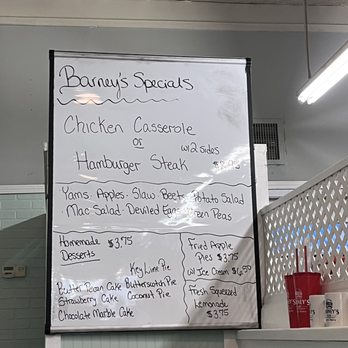 Barney's Specials
Chicken Casserole
or w/2 sides
Hamburger Steak
Yams. Apples. Slaw Beets. Potato Salad
Mac Salad. Deviled Eggs. Green Peas
Homemade $3.75
Desserts
Key Lime Pie
Butter Pecan Cake Butterscotch Pie
Strawberry Cake Coconut Pie
Chocolate Marble Cake
Fried Apple
Pies $3.75
w/ Ice Cream
Fresh Squeezed
Lemonade
$3.75